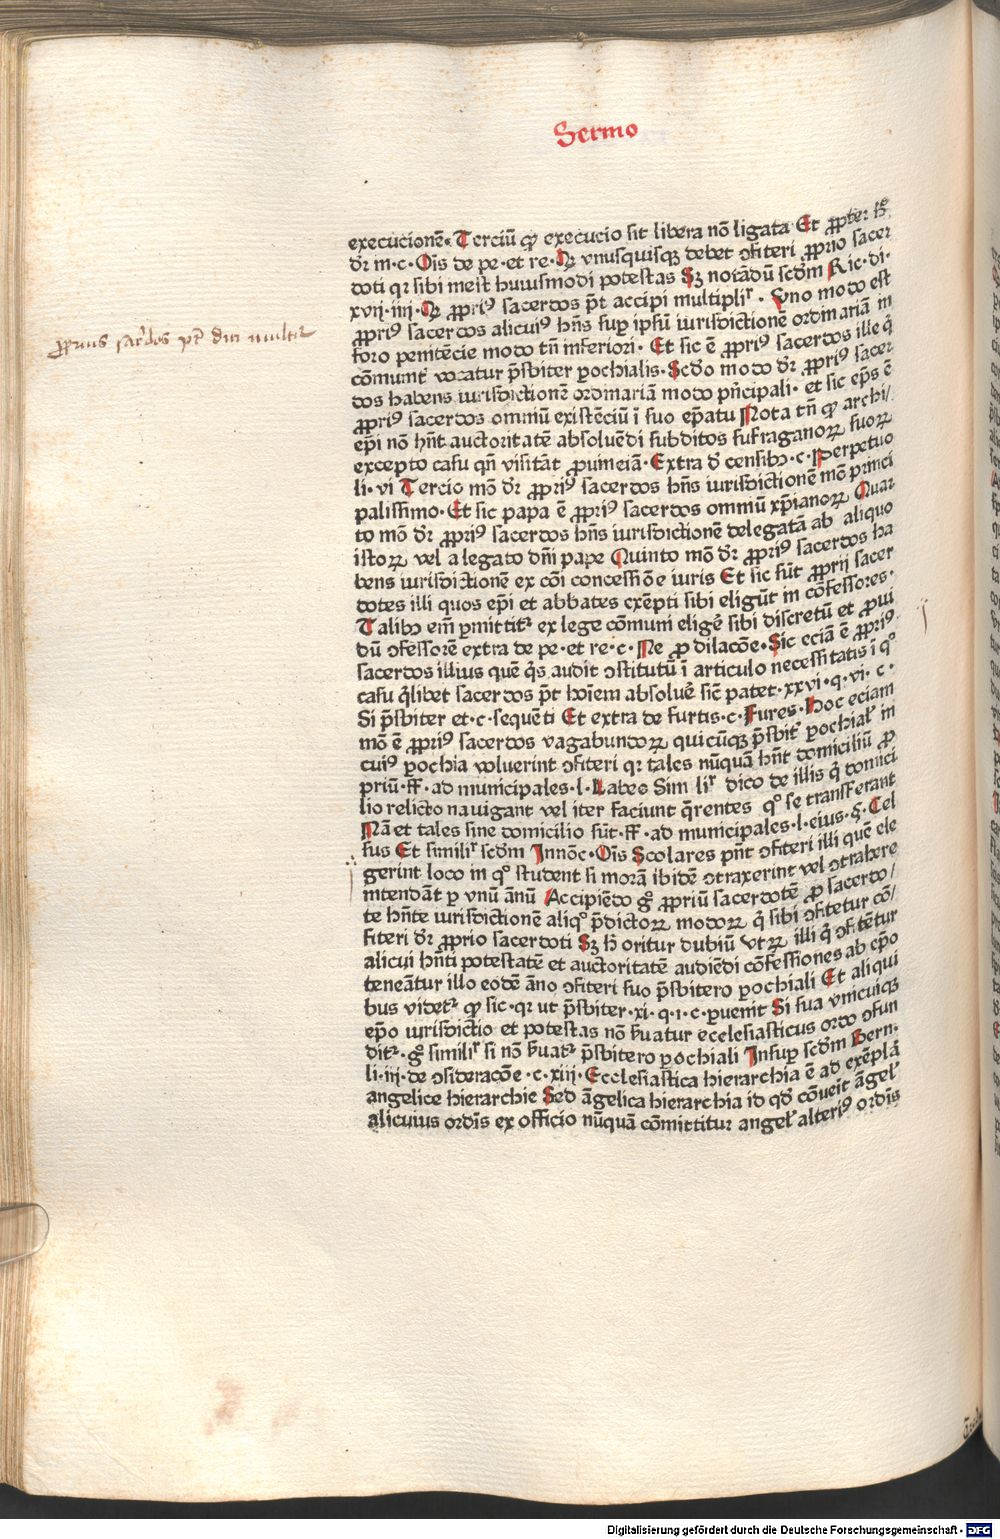 Sermo
execucionē. Terciū ꝙ execucio sit libera nō ligata Et ꝓpter hͦ
dr̄ m·c·Oīs de pe·et re·Qꝫ vnusquisqꝫ debet ꝯfiteri ꝓprio sacer
doti qr sibi inest huiusmodi potestas Sꝫ notādū scdm Ric·di·
xvij·iiij·Qꝫ ꝓpriꝰ sacerdos pt̄ accipi multiplr̄ · Vno modo est
ꝓpriꝰ sacerdos alicuiꝰ hn̄s suꝑ ip̄m iurisdictionē ordinariā in
foro penitēcie modo tn̄ inferiori· Et sic ē ꝓpriꝰ sacerdos ille q̄
cōmunit̄ vocatur p̄sbiter ꝑochialis·Scd̄o modo dr̄ ꝓpriꝰ sacer
dos habens iurisdictionē ordinariā modo pn̄cipali· et sic ep̄s ē
ꝓpriꝰ sacerdos omniū existēciū ī suo ep̄atu Nota tn̄ ꝙ archi/
ep̄i nō hn̄t auctoritatē absoluēdi subditos sufraganoꝝ suoꝝ
excepto casu qn̄ visitāt ꝓuinciā·Extra d̄ censibꝫ·c·Perpetuo
li·vi Tercio mō dr̄ ꝓpriꝰ sacerdos hn̄s iurisdictionē mō princi
palissimo·Et sic papa ē ꝓpriꝰ sacerdos omniū xp̄ianoꝝ Quar
to mō dr̄ ꝓpriꝰ sacerdos hn̄s iurisdictionē delegatā ab aliquo
istoꝝ vel a legato dn̄i pape Quinto mō dr̄ ꝓpriꝰ sacerdos ha
bens iurisdictionē ex cōi concessiōe iuris Et sic sūt ꝓprij sacer
dotes illi quos ep̄i et abbates exēpti sibi eligūt in cōfessores·
Talibꝫ em̄ ꝑmittitr̄ ex lege cōmuni eligē sibi discretū et ꝓui
dū ꝯfessorē extra de pe·et re·c·Ne ꝓ dilacōe·Sic eciā ē ꝓpriꝰ
sacerdos illius quē q̄s audit ꝯstitutū ī articulo necessitatis ī qͦ
casu q̄libet sacerdos pt̄ hoīem absoluē sic̄ patet·xxvi·q·vi·c·
Si p̄sbiter et·c·sequēti Et extra de furtis·c·Fures·Hoc eciam
mō ē ꝓpriꝰ sacerdos vagabundoꝝ quicūqꝫ p̄sbit̄ ꝑochial̄ in
cuiꝰ ꝑochia voluerint ꝯfiteri qr tales nūquā hn̄t domiciliū ꝓ
priū·ff·ad municipales·l·Labeo Simlir̄ dico de illis q̄ domici
lio relicto nauigant vel iter faciunt q̄rentes qͦ se transferant
Nā et tales sine domicilio sūt·ff·ad municipales·l·eius·§·Cel
sus Et similir̄ scdm Innōc·Oīs Scolares pn̄t ꝯfiteri illi quē ele
gerint loco in qͦ student si morā ibidē ꝯtraxerint vel ꝯtrahere
intendāt ꝑ vnū ānū Accipiēdo gͦ ꝓpriū sacerdotē ꝓ sacerdo/
te hn̄te iurisdictionē aliqͦ p̄dictoꝝ modoꝝ q̄ sibi ꝯfitetur cō/
fiteri dr̄ ꝓprio sacerdoti Sꝫ h̄ oritur dubiū Vtꝝ illi q̄ ꝯfitētur
alicui hn̄ti potestatē et auctoritatē audiēdi cōfessiones ab ep̄o
teneātur illo eodē āno ꝯfiteri suo p̄sbitero ꝑochiali Et aliqui
bus videtr̄ ꝙ sic·qr ut p̄sbiter·xi·q·i·c·ꝑuenit Si sua vnicuiqꝫ
ep̄o iurisdictio et potestas nō s̄uatur ecclesiasticus ordo ꝯfun
ditr̄·gͦ similir̄ si nō s̄uatr̄ p̄sbitero ꝑochiali Insuꝑ scdm Bern·
li·iij·de ꝯsideracōe·c·xiij·Ecclesiastica hierarchia ē ad exēplā
angelice hierarchie Sed āgelica hierarchia id qd̄ cōueīt āgel̄
alicuius ordīs ex officio nūquā cōmittitur angel̄ alteriꝰ ordīs
ꝓprius sacerdos pt̄ dici multir̄
Digitalisierung gefördert durch die Deutsche Forschungsgemeinschaft - DFG